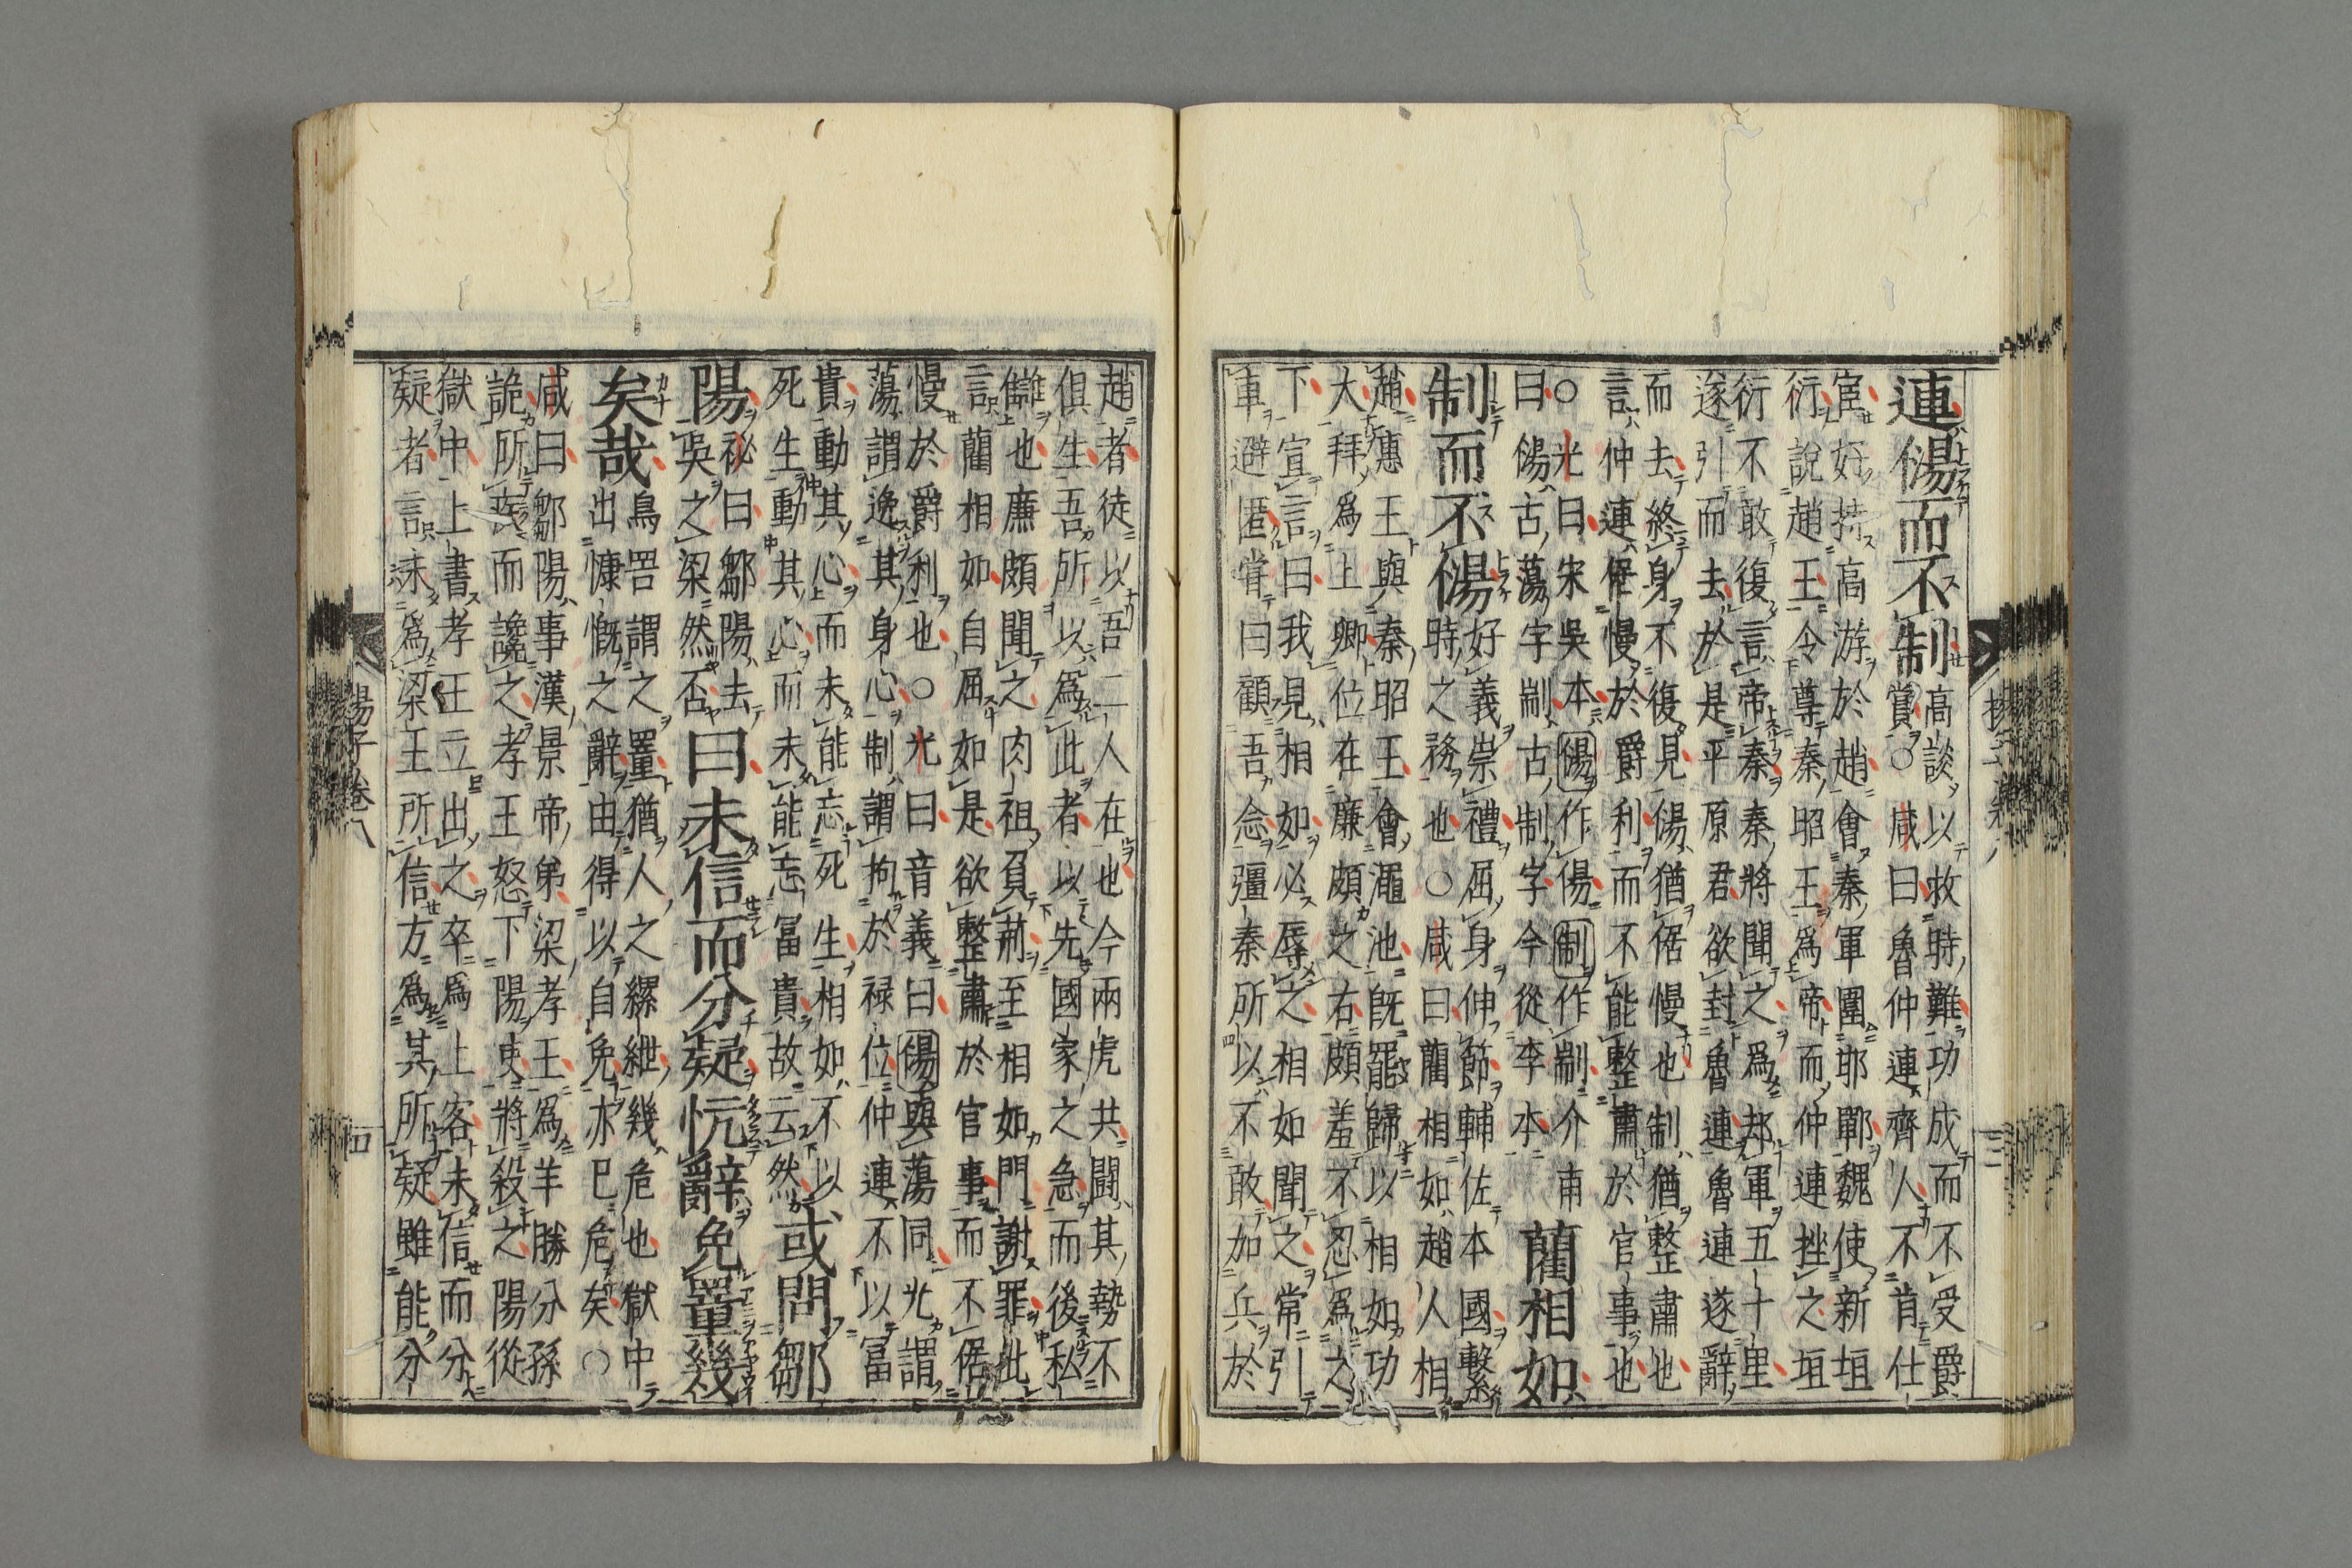 連㑽而不制
高談以救時難功成而不受爵
賞○咸曰魯仲連齊人不肯仕
宦好持高游於趙會秦軍圍邯鄲魏使新垣
衍說趙王令尊秦昭王為帝而仲連挫之垣
衍不敢復言帝秦秦將聞之為却軍五十里
遂引而去於是平原君欲封魯連魯連遂辭
而去終身不復見㑽猶倨慢也制猶整肅也
言仲連倨慢於爵利而不能整肅於官事也
○光曰宋吳本㑽作傷制作剬介甫
曰㑽古蕩字剬古制字今從李本
藺相如
制而不㑽
好義崇禮屈身伸節輔佐本國繫
時之務也○咸曰藺相如趙人相
趙惠王與秦昭王會澠池既罷歸以相如功
大拜為上卿位在廉頗之右頗羞不忍為之
下宣言曰我見相如必辱之相如聞之常引
車避匿嘗曰顧吾念彊秦所以不敢加兵於
三
趙者徒以吾二人在也今兩虎共鬬其勢不
俱生吾所以為此者以先國家之急而後私
讎也廉頗聞之肉袒負荊至相如門謝罪此
言藺相如自屈如是欲整肅於官事而不倨
慢於爵利也○光曰音義曰㑽與蕩同光謂
蕩謂逸其身心制謂拘於祿位仲連不以富
貴動其心而未能忘死生相如不以
死生動其心而未能忘富貴故云然
或問鄒
陽
祕曰鄒陽去
吳之梁然否
曰未信而分疑忼辭免罿幾
矣哉
鳥罟謂之罿猶人之縲紲幾危也獄中
出慷慨之辭由得以自免亦已危矣○
咸曰鄒陽事漢景帝弟梁孝王為羊勝公孫
詭所疾而讒之孝王怒下陽吏將殺之陽從
獄中上書孝王立出之卒為上客未信而分
疑者言未為梁王所信方為其所疑雖能分
揚子卷八
四